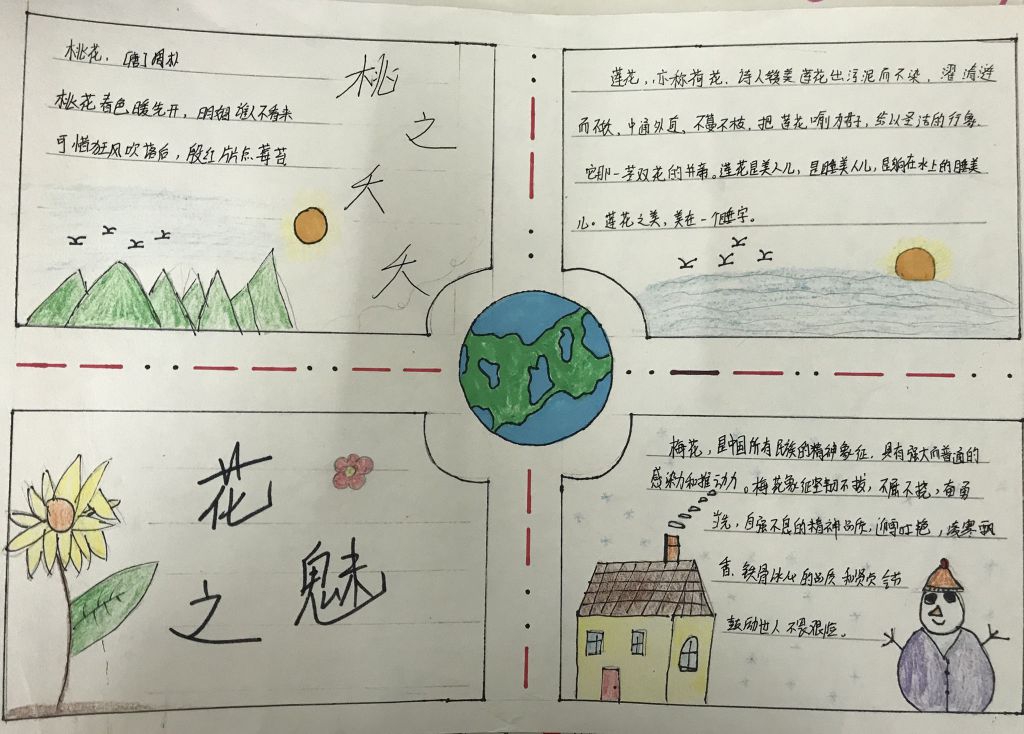 桃花,[唐]周朴
桃花春色暖先开,明媚谁人不看来
可惜狂风吹落后,殷红片片点莓苔
桃之夭夭
莲花,亦称荷花.诗人赞美莲花出污泥而不染,濯清涟
而不妖、中通外直、不蔓不枝,把莲花喻为君子,给以圣洁的形象.
它那一茎双花的并蒂。莲花是美人儿,是睡美人儿,是躺在水上的睡美
儿。莲花之美,美在一个睡字。
花之魅
梅花,是中国所有民族的精神象征.具有强大而普通的
感染力和推动力。梅花象征坚韧不拔,不屈不挠,奋勇
当先,自强不息的精神品质,迎雪吐艳,凌寒飘
香,铁骨冰心的品质和
鼓励世人不畏艰险。